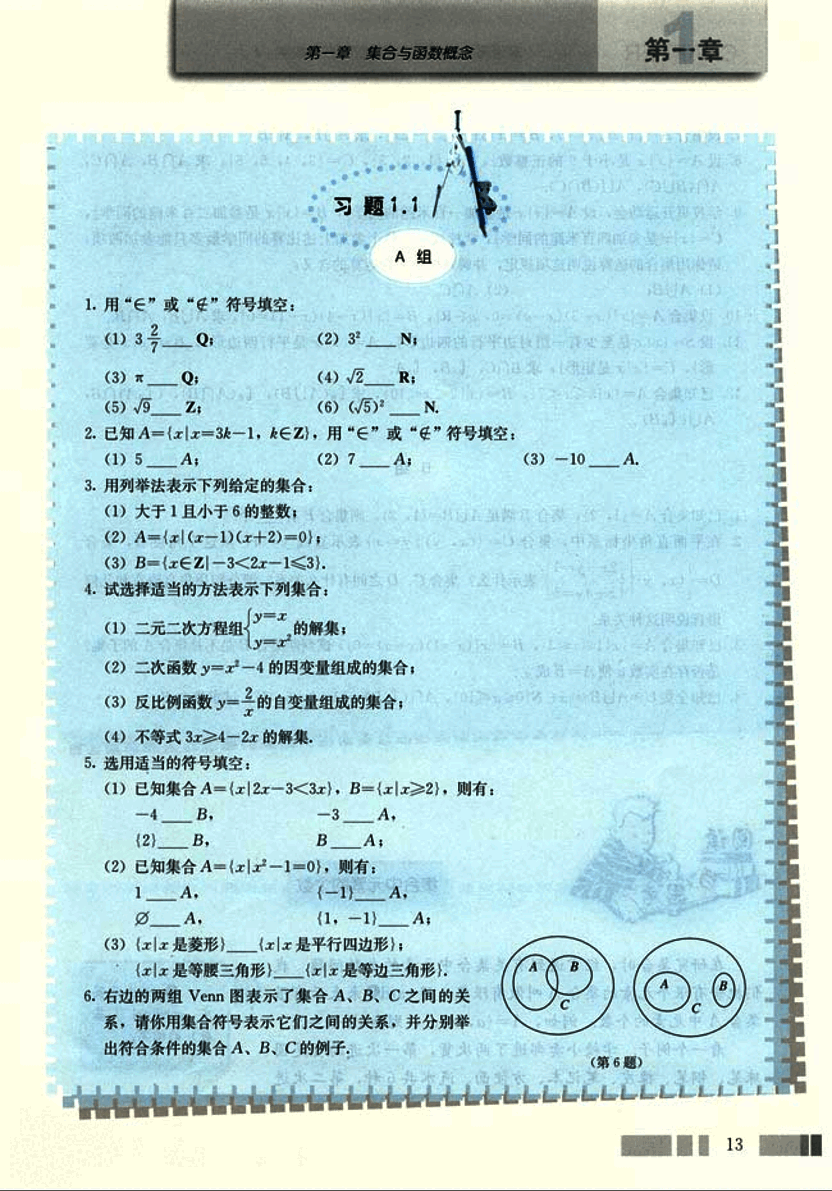 第一章 集合与函数概念
第一章
1
习题1.1
A 组
1. 用“∈”或“∉”符号填空：
(1) 3 2/7 ___ Q； (2) 3² ___ N；
(3) π ___ Q； (4) √2 ___ R；
(5) √9 ___ Z； (6) (√5)² ___ N.
2. 已知 A={x|x=3k−1，k∈Z}，用“∈”或“∉”符号填空：
(1) 5 ___ A； (2) 7 ___ A； (3) −10 ___ A.
3. 用列举法表示下列给定的集合：
(1) 大于1且小于6的整数；
(2) A={x|(x−1)(x+2)=0}；
(3) B={x∈Z|−3<2x−1≤3}.
4. 试选择适当的方法表示下列集合：
(1) 二元二次方程组{y=x
y=x² 的解集；
(2) 二次函数 y=x²−4 的因变量组成的集合；
(3) 反比例函数 y=2/x 的自变量组成的集合；
(4) 不等式 3x≥4−2x 的解集.
5. 选用适当的符号填空：
(1) 已知集合 A={x|2x−3<3x}，B={x|x≥2}，则有：
−4 ___ B， −3 ___ A，
{2} ___ B， B ___ A；
(2) 已知集合 A={x|x²−1=0}，则有：
1 ___ A， {−1} ___ A，
∅ ___ A， {1，−1} ___ A；
(3) {x|x是菱形} ___ {x|x是平行四边形}；
{x|x是等腰三角形} ___ {x|x是等边三角形}.
6. 右边的两组 Venn 图表示了集合 A、B、C 之间的关
系，请你用集合符号表示它们之间的关系，并分别举
出符合条件的集合 A、B、C 的例子.
A B
C
A B
C
(第6题)
13